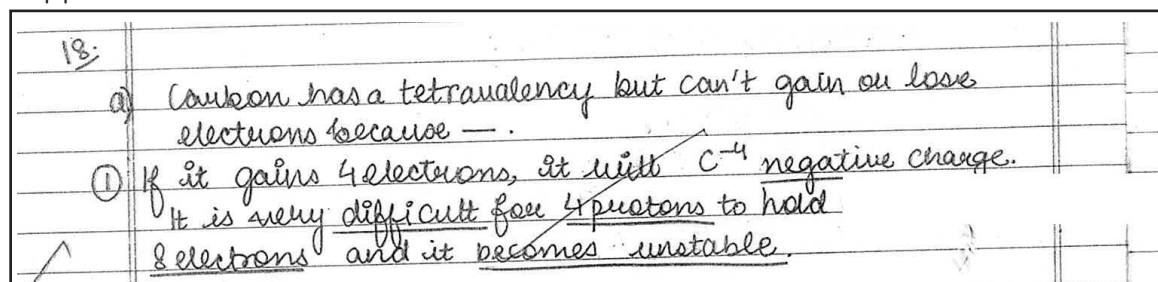 18.
a) Carbon has a tetravalency but can't gain or lose
electrons because — .
① If it gains 4 electrons, it will C⁻⁴ negative charge.
It is very difficult for 4 protons to hold
8 electrons and it becomes unstable.